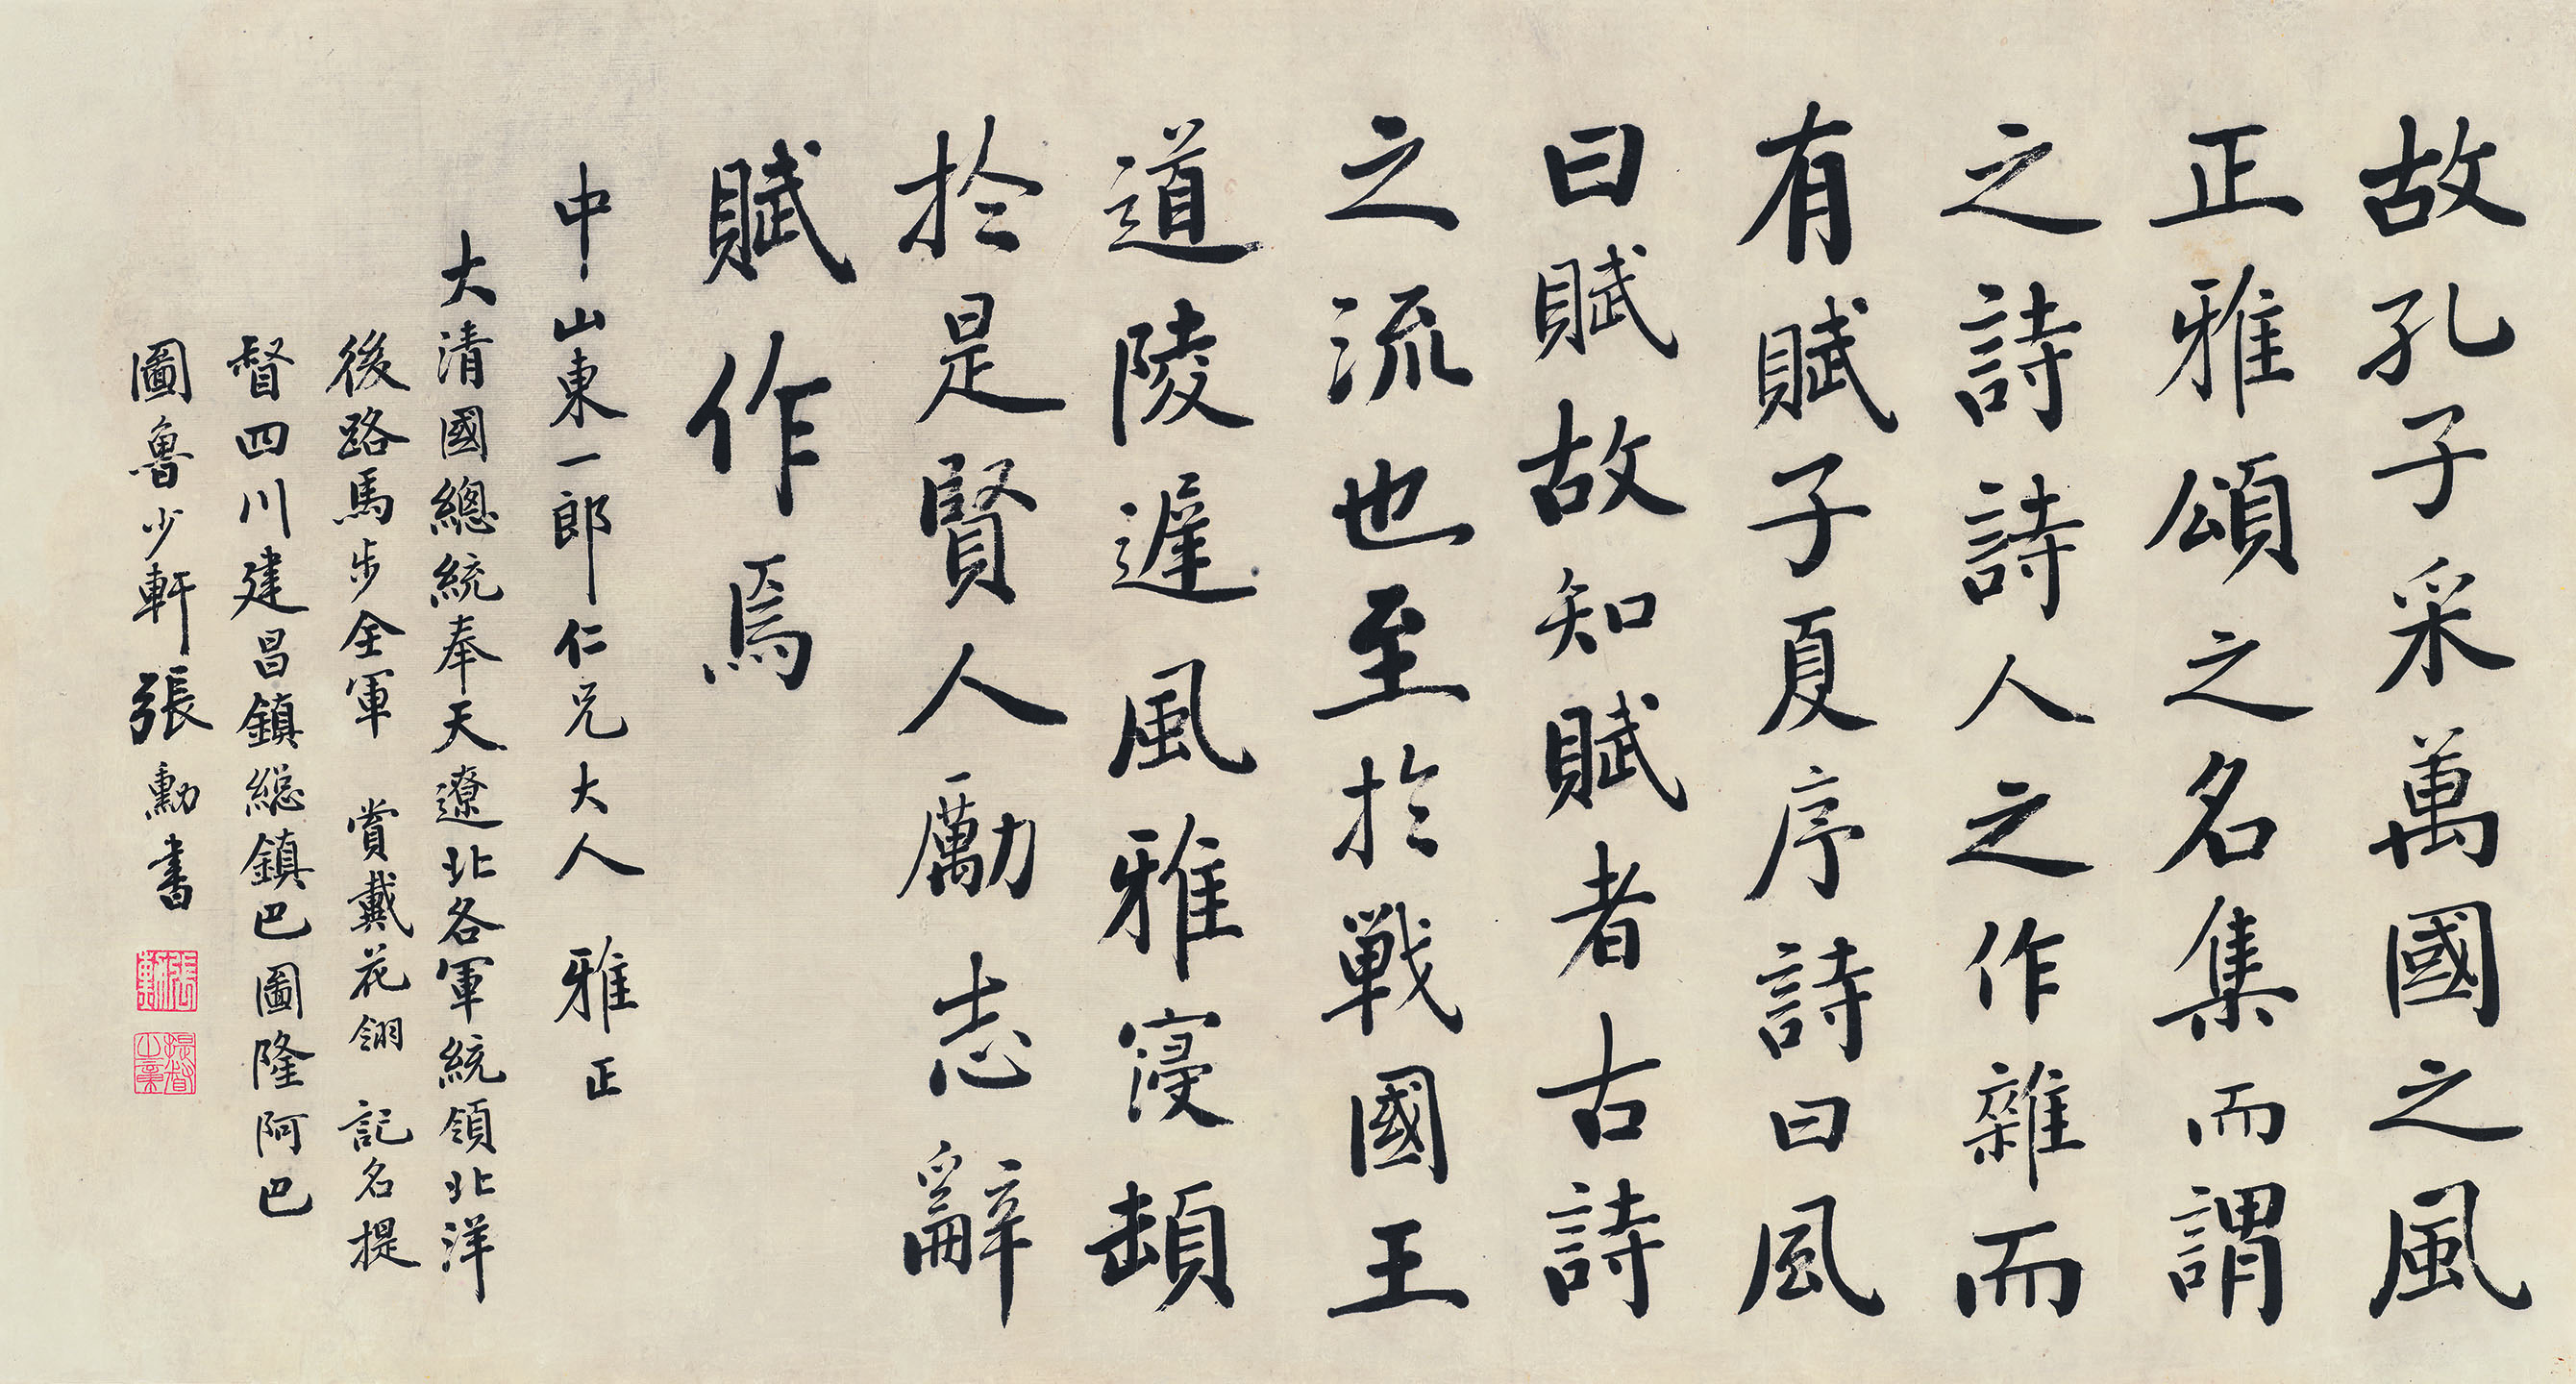 故孔子采萬國之風
正雅頌之名集而謂
之詩詩人之作雜而
有賦賦子夏序詩曰風
曰賦故知賦者古詩
之流也至於戰國王
道陵遲風雅寖頓
於是賢人勵志辭
賦作焉
中山東一郎仁兄大人 雅正
大清國總統奉天遼北各軍統領北洋
後路馬步全軍 賞戴花翎 記名提
督四川建昌鎮総鎮巴圖隆阿巴
圖魯少軒張勳書
張勳